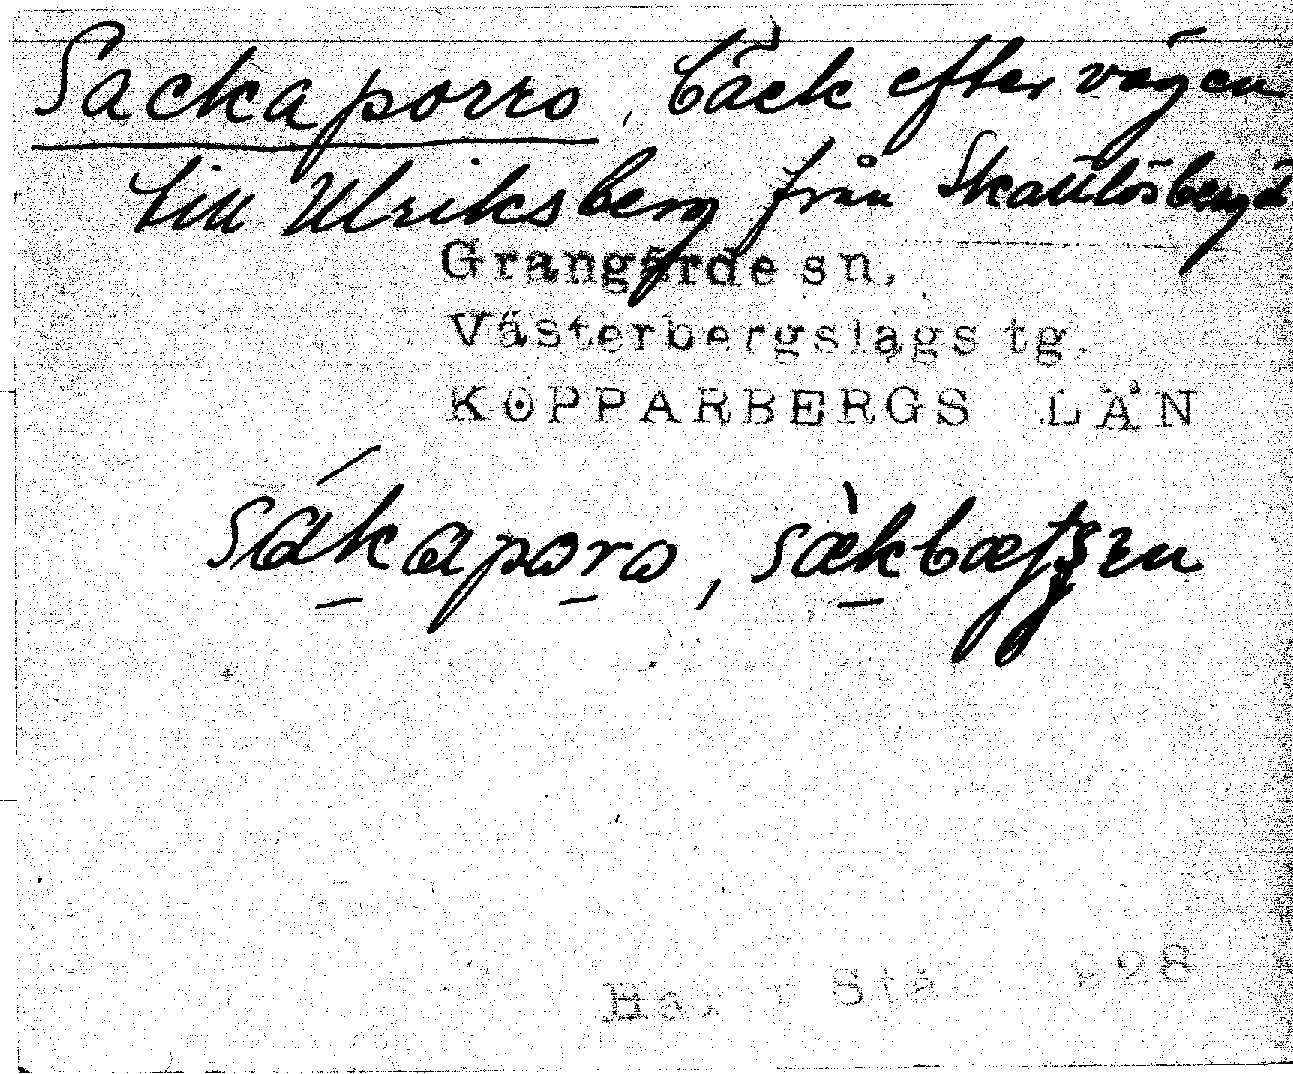 Sackaporro, bäck efter vägen
till Ulriksberg från Skattlösberg
Grangärde sn,
Västerbergslags tg.
KOPPARBERGS LÄN
sákaporo, sækbæ